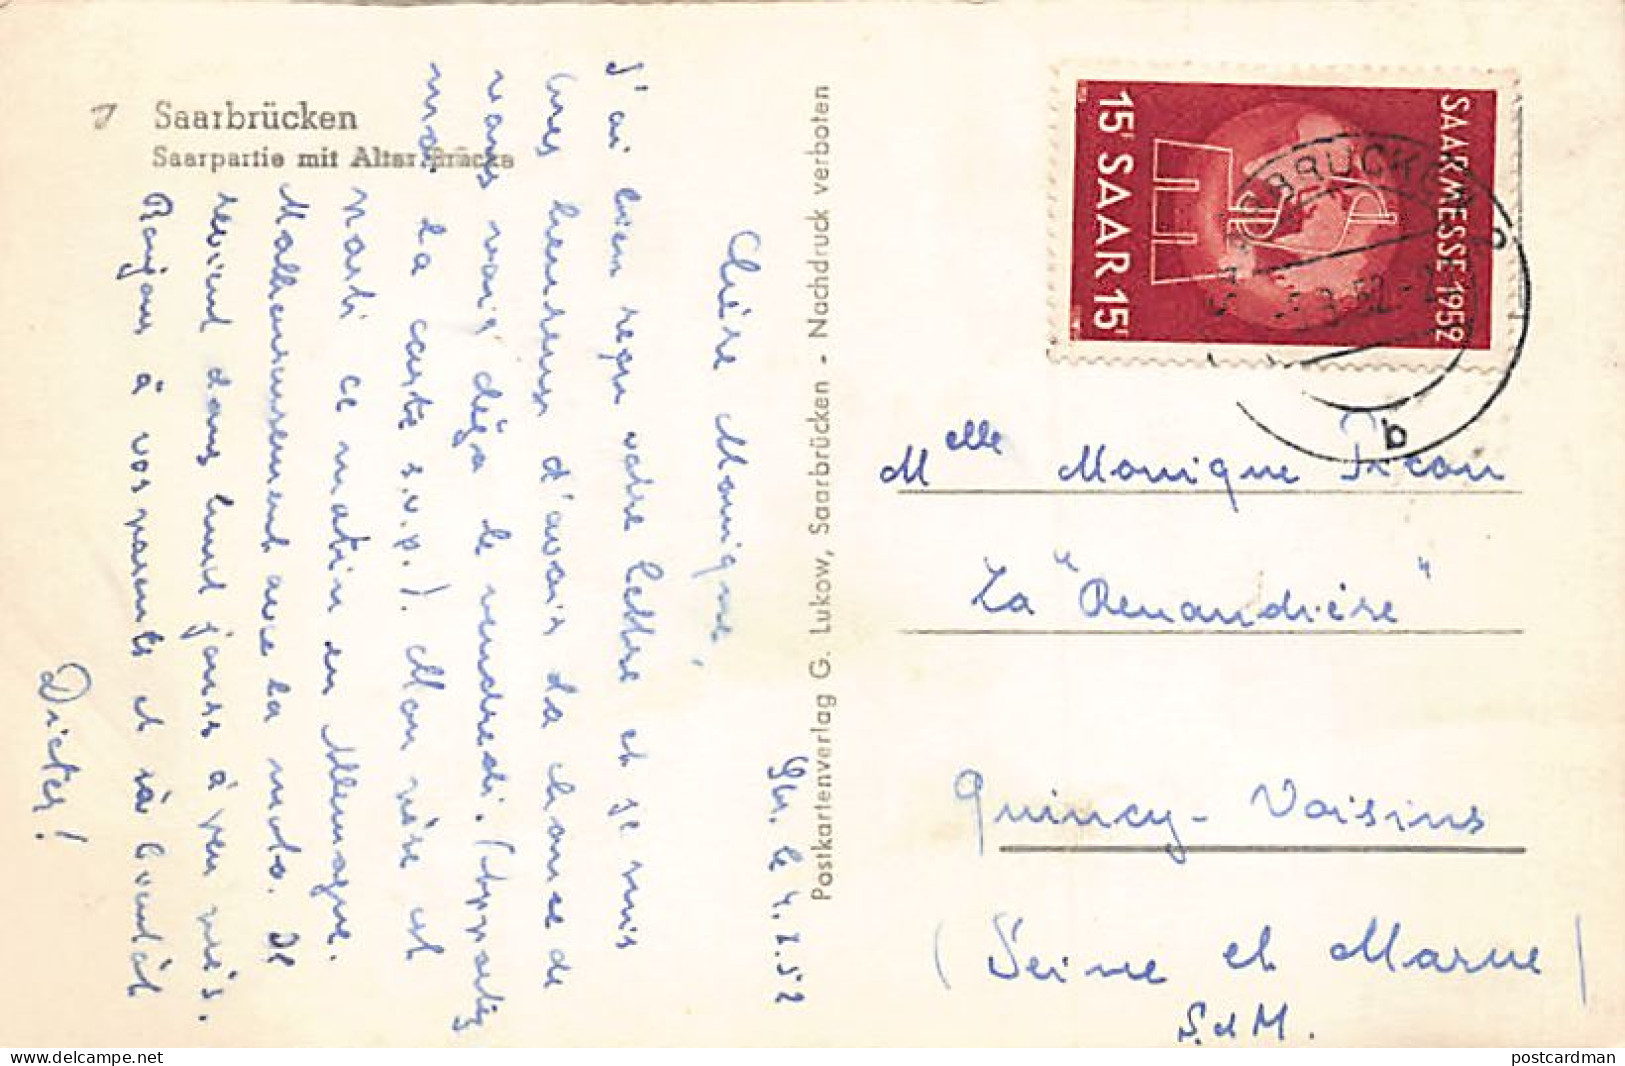 Saarbrücken
Saarpartie mit Alter Brücke
Sbr. le 4.8.52
Chère Monique,
J'ai bien reçu votre lettre et je suis
très heureux d'avoir la chance de
vous voir déjà le vendredi. (Apportez
moi la carte s.v.p.). Mon père est
parti ce matin en Allemagne.
Malheureusement avec la moto. Il
revient dans huit jours à peu près.
Bonjour à vos parents et à bientôt
Dieter!
Postkartenverlag G. Lukow, Saarbrücken - Nachdruck verboten
SAARMESSE 1952
15F SAAR 15F
SAARBRÜCKEN
b
Melle Monique
La "Renandière"
Quincy-Voisins
(Seine et Marne)
S. et M.
postcardman